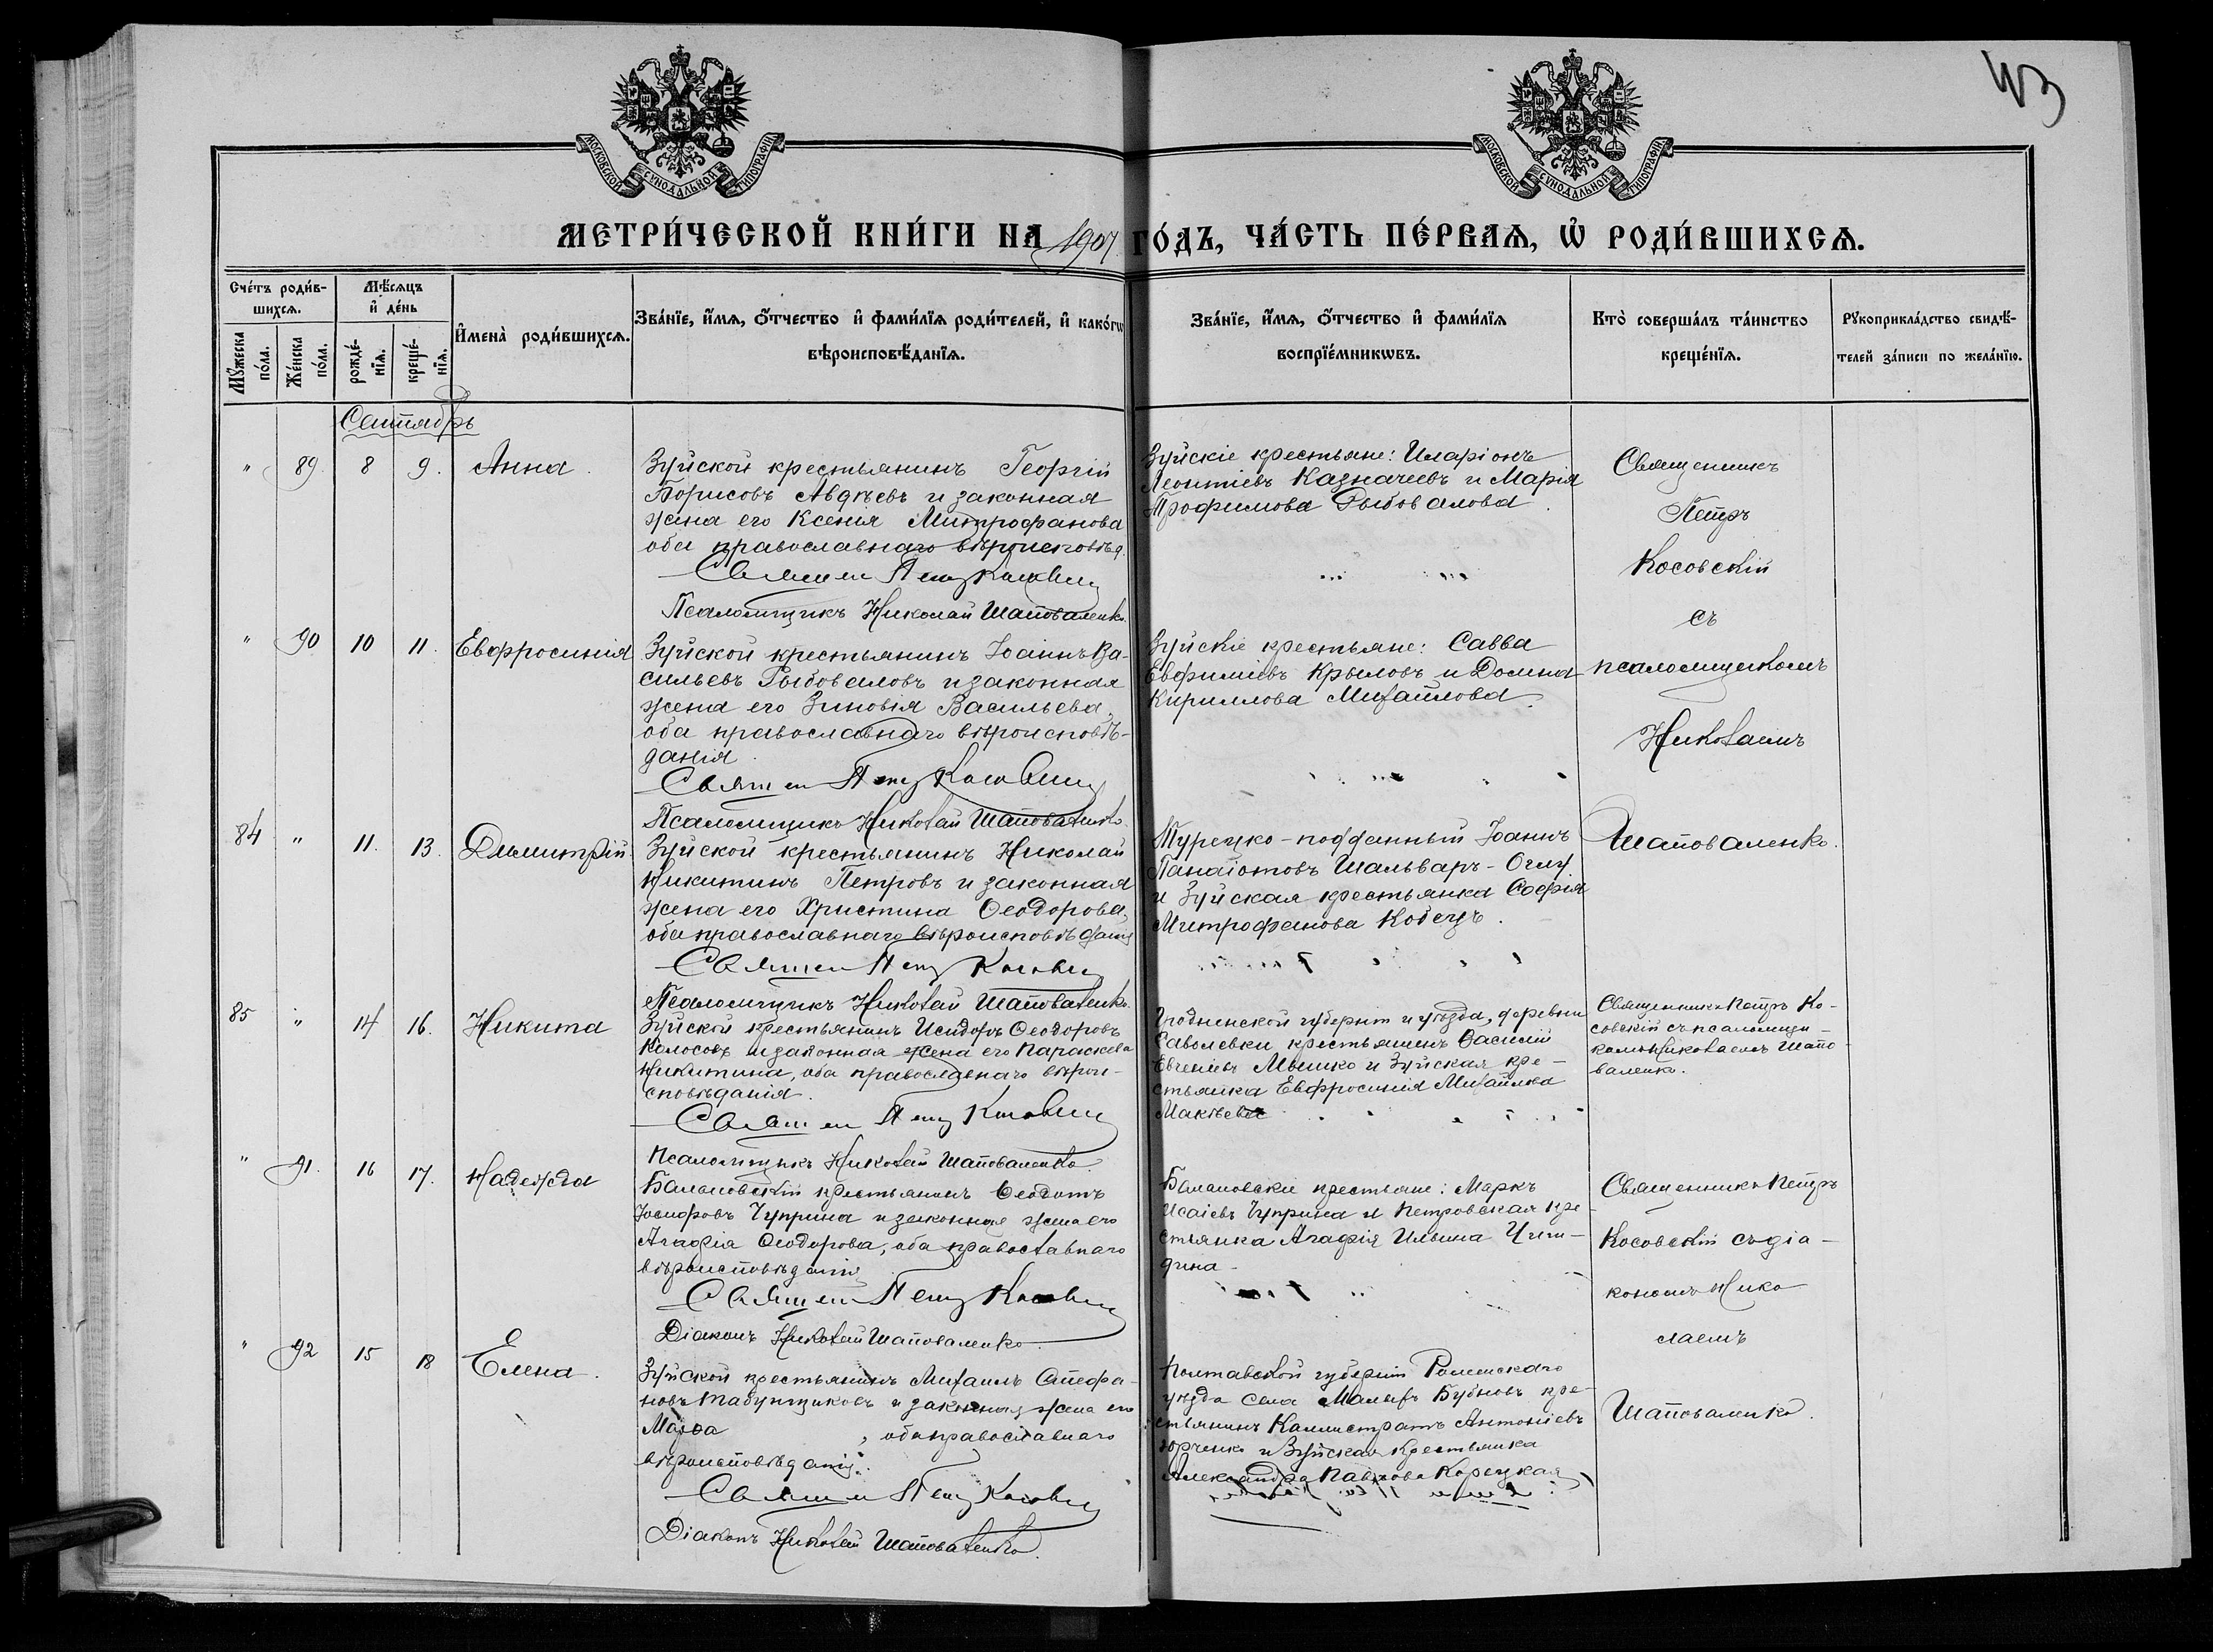 43
МОСКОВСКОЙ СѴНОДАЛЬНОЙ ТИПОГРАФІИ
МОСКОВСКОЙ СѴНОДАЛЬНОЙ ТИПОГРАФІИ
МЕТРИ́ЧЕСКОЙ КНИ́ГИ НА 1907 ГО́ДЪ, ЧА́СТЬ ПЕ́РВАѦ, Ѡ҆ РОДИ́ВШИХСѦ.
Сче́тъ роди́в-
шихсѧ.
Мꙋ́жеска по́ла.
Же́нска по́ла.
Мѣ́сѧцъ
и҆ де́нь
рожде́-
нїѧ.
креще́-
нїѧ.
И҆мена̀ роди́вшихсѧ.
Зва́нїе, и҆́мѧ, ѻ҆́тчество и҆ фами́лїѧ роди́телей, и҆ како́гѡ
вѣроисповѣ́данїѧ.
Зва́нїе, и҆́мѧ, ѻ҆́тчество и҆ фами́лїѧ
воспрїе́мникѡвъ.
Кто̀ соверша́лъ та́инство
креще́нїѧ.
Рꙋкоприкла́дство свидѣ́-
телей за́писи по жела́нїю.
Сентябрь
" 89 8 9. Анна.
Зуйской крестьянинъ Георгій
Борисовъ Авдѣевъ и законная
жена его Ксенія Митрофанова
оба православнаго вѣроисповѣд.
Священ Петр Косовскій
Псаломщикъ Николай Шаповаленко.
Зуйскіе крестьяне: Иларіонъ
Леонтіевъ Казначеевъ и Марія
Трофимова Рыбовалова.
Священникъ
Петръ
Косовскій
съ
псаломщикомъ
Николаемъ
Шаповаленко.
" 90 10 11. Евфросинія
Зуйской крестьянинъ Іоаннъ Ва-
сильевъ Рыбоваловъ и законная
жена его Зиновія Васильева,
оба православнаго вѣроисповѣ-
данія.
Священ Петр Косовскій
Псаломщикъ Николай Шаповаленко.
Зуйскіе крестьяне: Савва
Евфиміевъ Крыловъ и Домна
Кириллова Михайлова.
84 " 11. 13. Димитрій.
Зуйской крестьянинъ Николай
Никитинъ Петровъ и законная
жена его Христина Ѳеодорова,
оба православнаго вѣроисповѣданія
Священ Петр Косовскій
Псаломщикъ Николай Шаповаленко.
Турецко-подданный Іоаннъ
Панаіотовъ Шальваръ-Оглу
и Зуйская крестьянка Софія
Митрофанова Кобецъ.
85 " 14 16. Никита
Зуйской крестьянинъ Исидоръ Ѳеодоровъ
Колосовъ и законная жена его Параскева
Никитина, оба православнаго вѣрои-
сповѣданія.
Священ Петр Косовскій
Псаломщикъ Николай Шаповаленко.
Гродненской губерніи и уѣзда, деревни
крестьянинъ Василій
Евгеніевъ Мышко и Зуйская кре-
стьянка Евфросинія Михайлова
Макѣева
Священникъ Петръ Ко-
совскій съ псаломщи-
комъ Николаемъ Шапо-
валенко.
" 91. 16 17. Надежда
Балановскій крестьянинъ Ѳеодотъ
Іосифовъ Чуприна и законная жена его
Агафія Ѳеодорова, оба православнаго
вѣроисповѣданія
Священ Петр Косовскій
Діаконъ Николай Шаповаленко.
Балановскіе крестьяне: Маркъ
Исаіевъ Чуприна и Петровская кре-
стьянка Агафія Ильина
Священникъ Петръ
Косовскій съ діа-
кономъ Нико
лаемъ
Шаповаленко.
" 92 15 18 Елена.
Зуйской крестьянинъ Михаилъ Стефа-
новъ Табунщиковъ и законная жена его
Марѳа , оба православнаго
вѣроисповѣданія.
Священ Петр Косовскій
Діаконъ Николай Шаповаленко.
Полтавской губерніи Роменскаго
уѣзда села Малыхъ Бубновъ кре-
стьянинъ Каллистратъ Антоніевъ
Юрченко и Зуйская крестьянка
Александра Павлова Корецкая